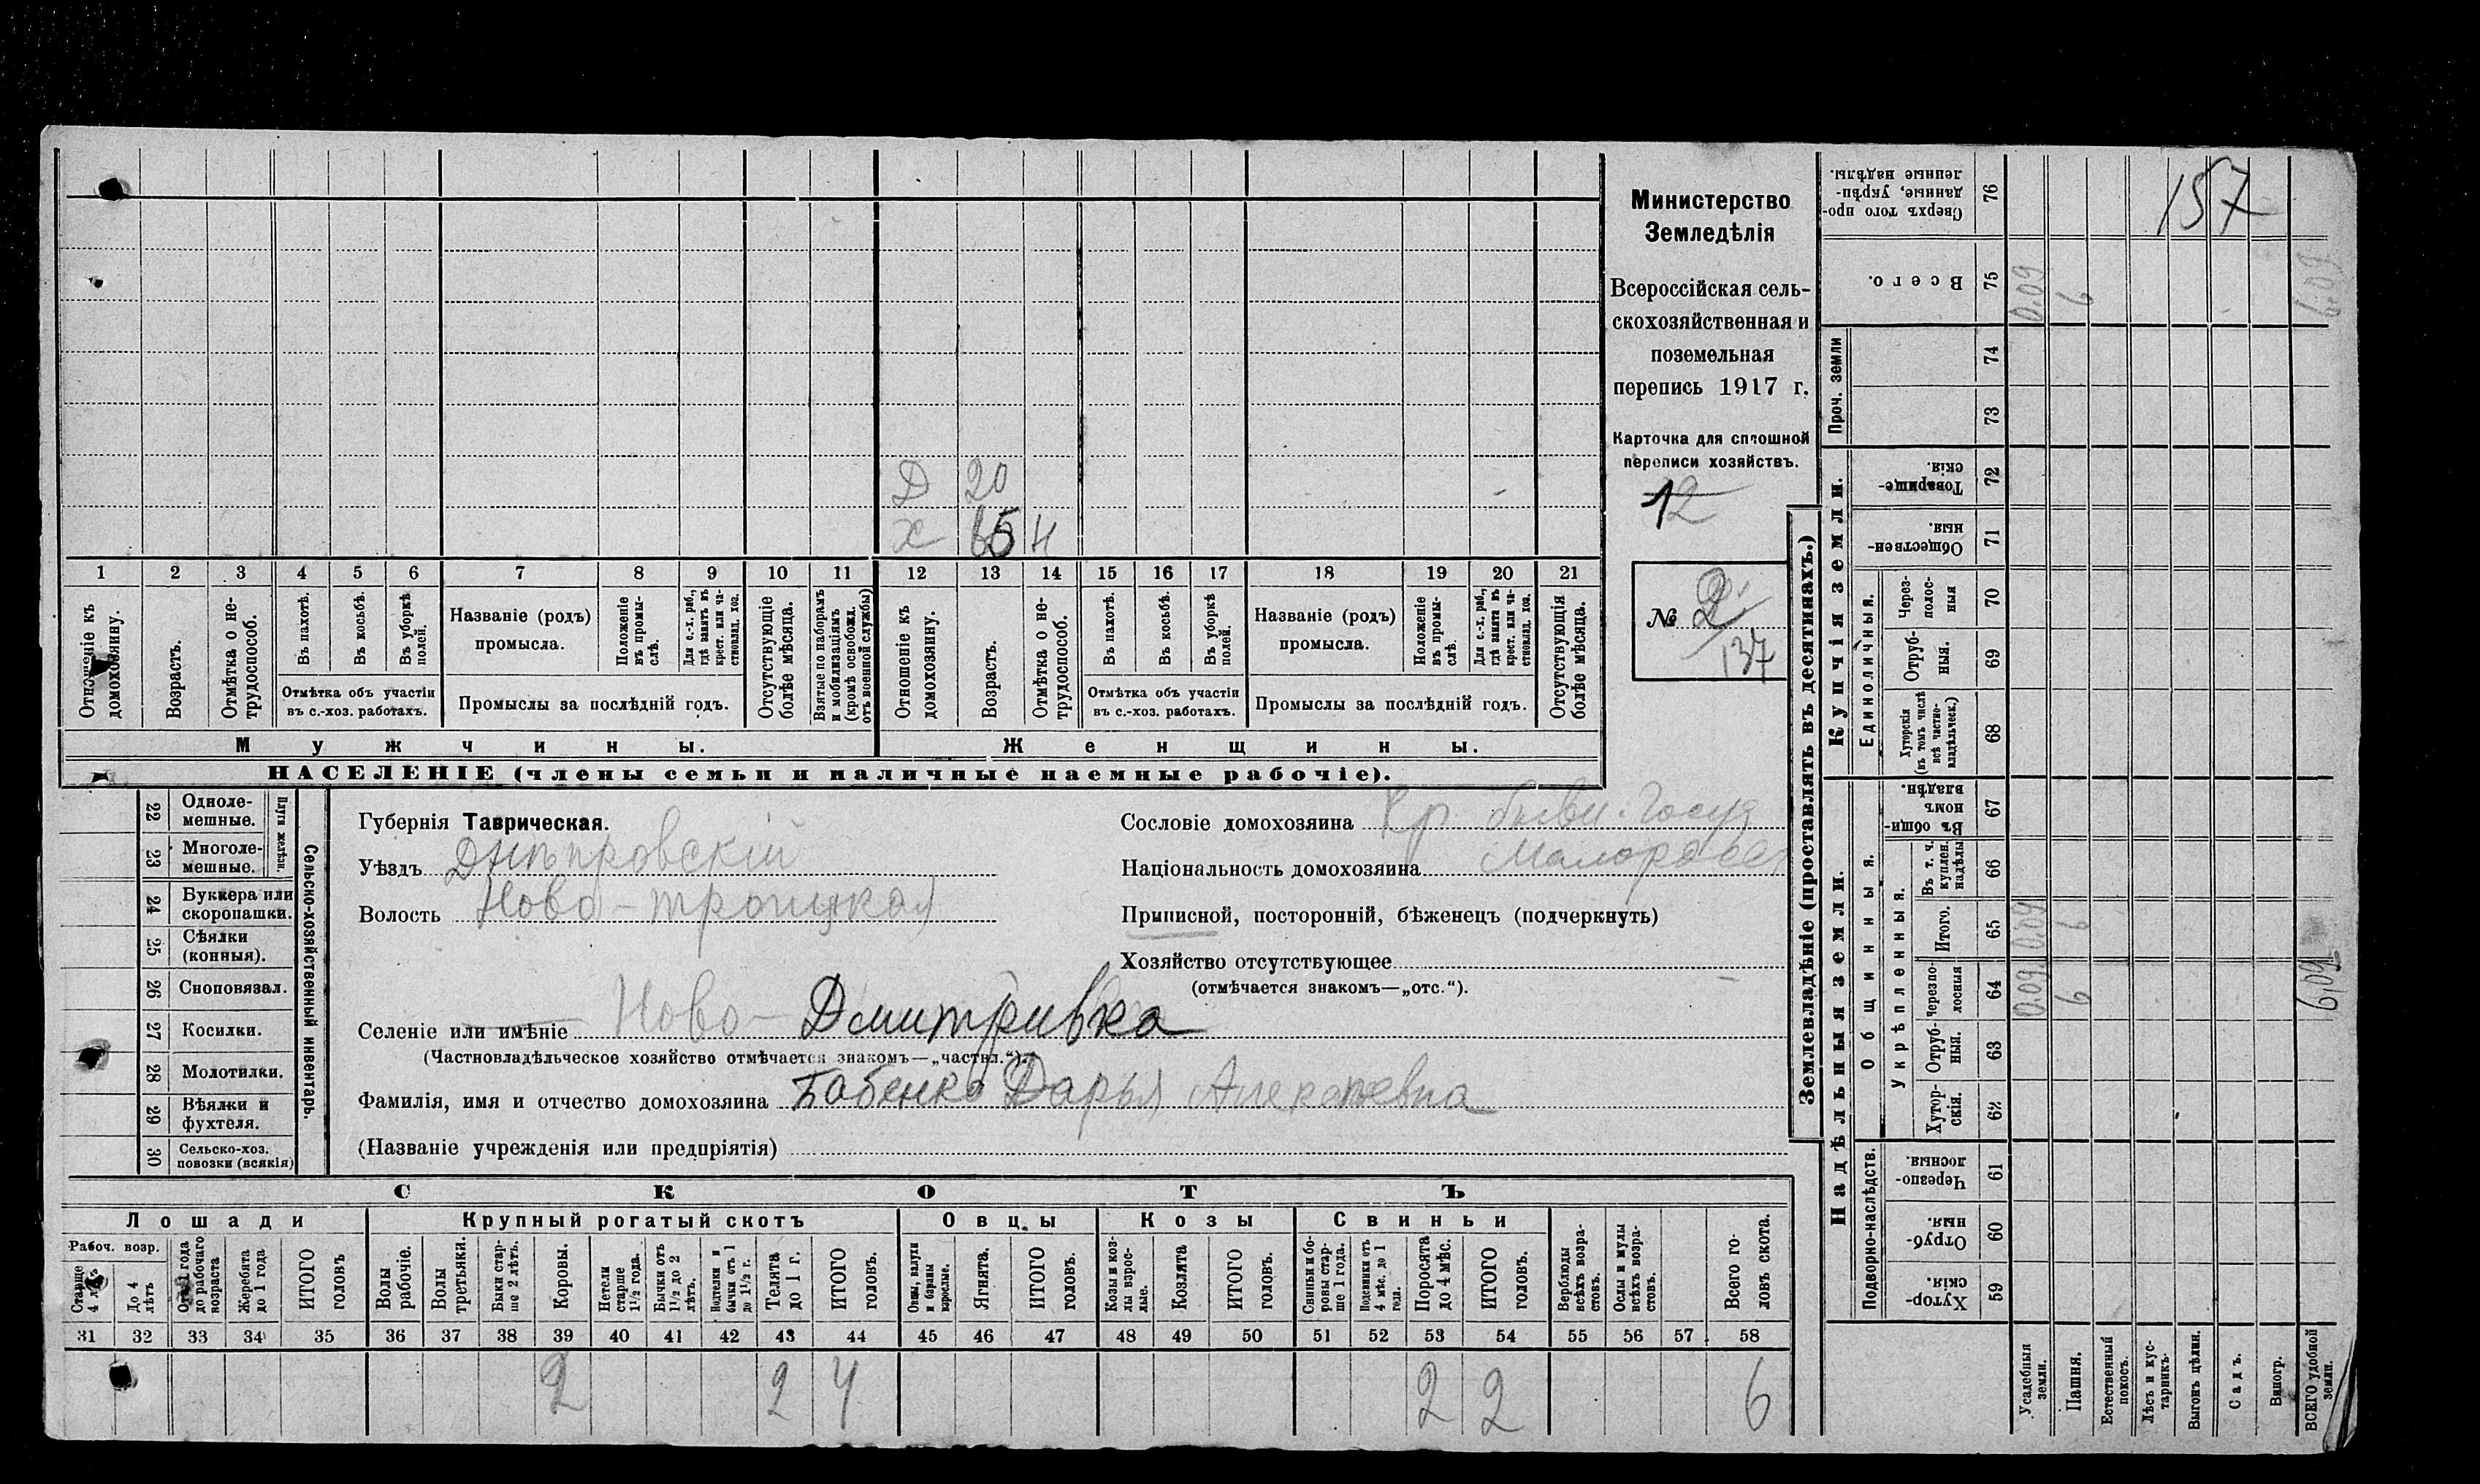 Министерство
Земледѣлія
Всероссійская сель-
скохозяйственная и
поземельная
перепись 1917 г.
Карточка для сплошной
переписи хозяйствъ.
12
№ 2
137
Д 20
х 65 н
1 2 3 4 5 6 7 8 9 10 11 12 13 14 15 16 17 18 19 20 21
Отношеніе къ домохозяину.
Возрастъ.
Отмѣтка о не-трудоспособ.
Въ пахотѣ.
Въ косьбѣ.
Въ уборкѣ полей.
Отмѣтка объ участіи
въ с.-хоз. работахъ.
Названіе (родъ)
промысла.
Положеніе въ промы-слѣ.
Для с.-х. раб., гдѣ занятъ въ крест. или ча-стновлад. хоз.
Промыслы за послѣдній годъ.
Отсутствующіе болѣе мѣсяца.
Взятые по наборамъ и мобилизаціямъ (кромѣ освобожд. отъ военной службы)
Отношеніе къ домохозяину.
Возрастъ.
Отмѣтка о не-трудоспособ.
Въ пахотѣ.
Въ косьбѣ.
Въ уборкѣ полей.
Отмѣтка объ участіи
въ с.-хоз. работахъ.
Названіе (родъ)
промысла.
Положеніе въ промы-слѣ.
Для с.-х. раб., гдѣ занята въ крест. или ча-стновлад. хоз.
Промыслы за послѣдній годъ.
Отсутствующія болѣе мѣсяца.
Мужчины.
Женщины.
НАСЕЛЕНІЕ (члены семьи и наличные наемные рабочіе).
22 Одноле-мешные.
23 Многоле-мешные.
Плуги желѣзн.
24 Буккера или скоропашки.
25 Сѣялки (конныя).
26 Сноповязал.
27 Косилки.
28 Молотилки.
29 Вѣялки и фухтеля.
30 Сельско-хоз. повозки (всякія)
Сельско-хозяйственный инвентарь.
Губернія Таврическая.
Уѣздъ Днѣпровскій
Волость Ново-троицкая
Селеніе или имѣніе Ново-Дмитривка
(Частновладѣльческое хозяйство отмѣчается знакомъ—„частвл.“).
Фамилія, имя и отчество домохозяина Бабенко Дарья Алексѣевна
(Названіе учрежденія или предпріятія)
Сословіе домохозяина Кр. бывш. Госуд
Національность домохозяина Малоросс
Приписной, посторонній, бѣженецъ (подчеркнуть)
Хозяйство отсутствующее
(отмѣчается знакомъ—„отс.“).
СКОТЪ
Лошади
Крупный рогатый скотъ
Овцы
Козы
Свиньи
Рабоч. возр.
Старше 4 лѣтъ
До 4 лѣтъ
Отъ 1 года до рабочаго возраста
Жеребята до 1 года
ИТОГО головъ
Волы рабочіе.
Волы третьяки.
Быки стар-ше 2 лѣтъ.
Коровы.
Нетели старше 1½ года.
Бычки отъ 1½ до 2 лѣтъ.
Подтелки и бычки отъ 1 до 1½ г.
Телята до 1 г.
ИТОГО головъ.
Овцы, валухи и бараны взрослые.
Ягнята.
ИТОГО головъ.
Козы и коз-лы взрос-лые.
Козлята
ИТОГО головъ.
Свиньи и бо-ровы стар-ше 1 года.
Подсвинки отъ 4 мѣс. до 1 года.
Поросята до 4 мѣс.
ИТОГО головъ.
Верблюды всѣхъ возра-стовъ.
Ослы и мулы всѣхъ возра-стовъ.
Всего го-ловъ скота.
31 32 33 34 35 36 37 38 39 40 41 42 43 44 45 46 47 48 49 50 51 52 53 54 55 56 57 58
2 2 4 2 2 6
Землевладѣніе (проставлять въ десятинахъ.)
Надѣльныя земли.
Купчія земли.
Проч. земли
Подворно-наслѣдств.
Общинныя.
Укрѣпленныя.
Единоличныя.
76 Сверхъ того про-данные, укрѣп-ленные надѣлы.
157
75 Всего. 0.09 6 6,09
74
73
72 Товарище-скія.
71 Обществен-ныя.
70 Через-полос-ныя
69 Отруб-ныя.
68 Хуторскія (въ томъ числѣ всѣ частно-владѣльческ.)
67 Въ общи-номъ владѣн.
66 Въ т. ч. куплен. надѣлы
65 Итого. 0.09 6
64 Черезпо-лосныя 0.09 6 6,09
63 Отруб-ныя.
62 Хутор-скія.
61 Черезпо-лосныя.
60 Отруб-ныя.
59 Хутор-скія
Усадебныя земли.
Пашня.
Естественный покосъ.
Лѣсъ и кус-тарникъ.
Выгонъ цѣлин.
Садъ.
Виногр.
ВСЕГО удобной земли.